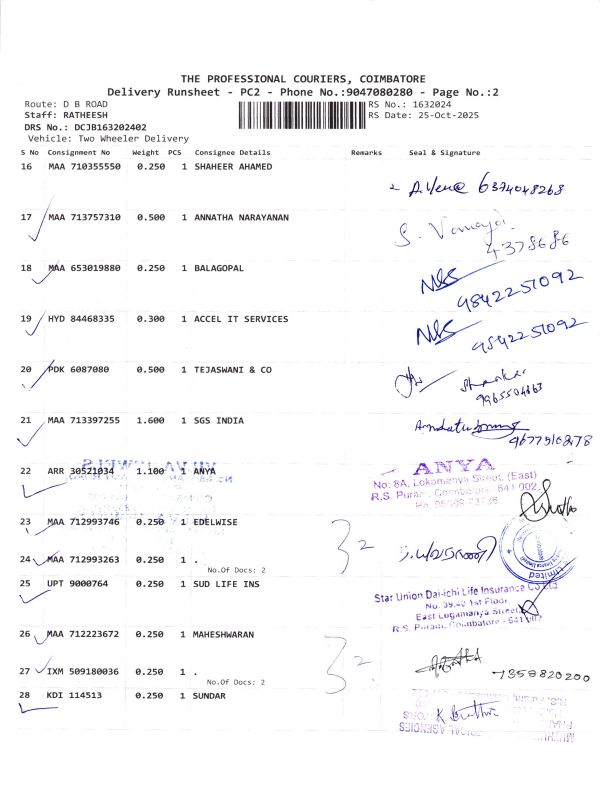 THE PROFESSIONAL COURIERS, COIMBATORE
Delivery Runsheet - PC2 - Phone No.:9047080280 - Page No.:2
Route: D B ROAD RS No.: 1632024
Staff: RATHEESH RS Date: 25-Oct-2025
DRS No.: DCJB163202402
Vehicle: Two Wheeler Delivery
S No Consignment No Weight PCS Consignee Details Remarks Seal & Signature
16 MAA 710355550 0.250 1 SHAHEER AHAMED
6374048268
17 MAA 713757310 0.500 1 ANNATHA NARAYANAN
4378686
18 MAA 653019880 0.250 1 BALAGOPAL
9842251092
19 HYD 84468335 0.300 1 ACCEL IT SERVICES
9842251092
20 PDK 6087080 0.500 1 TEJASWANI & CO
Shankar
21 MAA 713397255 1.600 1 SGS INDIA
22 ARR 30521034 1.100 1 ANYA
ANYA
No: 8A, Lokamanya Street, (East)
R.S. Puram, Coimbatore - 641 002.
23 MAA 712993746 0.250 1 EDELWISE
3 2
24 MAA 712993263 0.250 1 .
No.Of Docs: 2
25 UPT 9000764 0.250 1 SUD LIFE INS
Star Union Dai-ichi Life Insurance Co Ltd
1st Floor,
East Logamanya Street
R.S. Puram, Coimbatore - 641 002
26 MAA 712223672 0.250 1 MAHESHWARAN
3 2
27 IXM 509180036 0.250 1 .
No.Of Docs: 2
7358820200
28 KDI 114513 0.250 1 SUNDAR